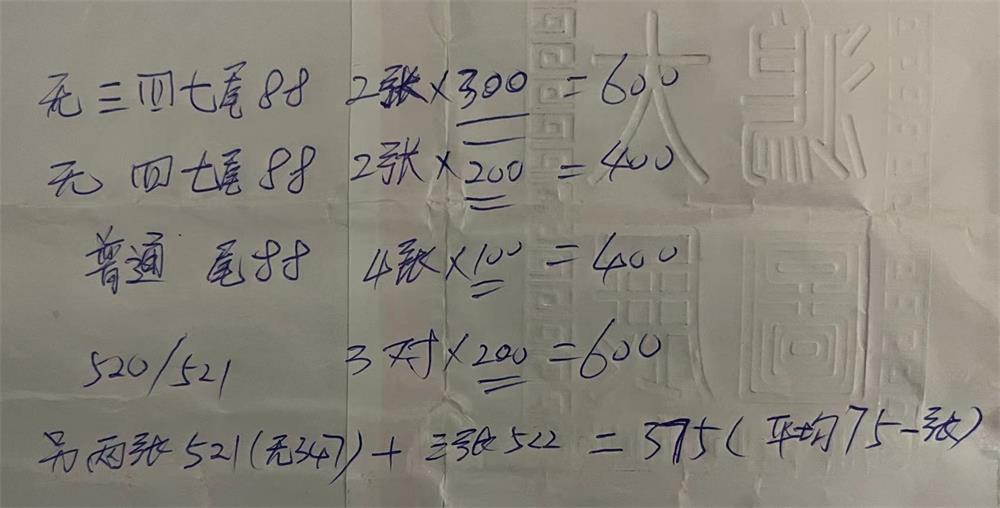 无三四七尾88 2张×300=600
无 四七尾88 2张×200=400
普通 尾88 4张×100=400
520/521 3对×200=600
另两张521(无347)+三张522=375(平均75一张)